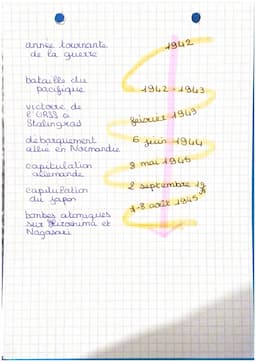 année tournante
de la guerre
1942
batailles du
pacifique
1942-1943
victoire de
l'URSS à
Stalingrad
février 1943
débarquement
allié en Normandie
6 juin 1944
capitulation
allemande
8 mai 1945
capitulation
du japon
2 septembre
bombes atomiques
sur Hiroshima et
Nagasaki
août 1945